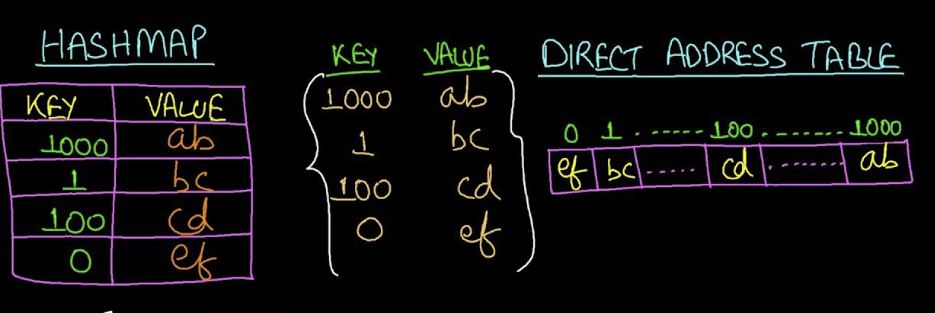 HASHMAP
KEY VALUE
1000 ab
1 bc
100 cd
0 ef
KEY VALUE
1000 ab
1 bc
100 cd
0 ef
DIRECT ADDRESS TABLE
0 1 ------ 100 ------- 1000
ef bc ----- cd ------- ab